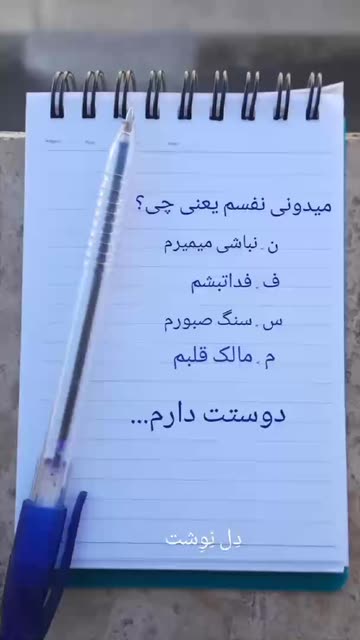 میدونی نفسم یعنی چی؟
ن_نباشی میمیرم
ف_فداتبشم
س_سنگ صبورم
م_مالک قلبم
دوستت دارم...
دِل نِوِشت